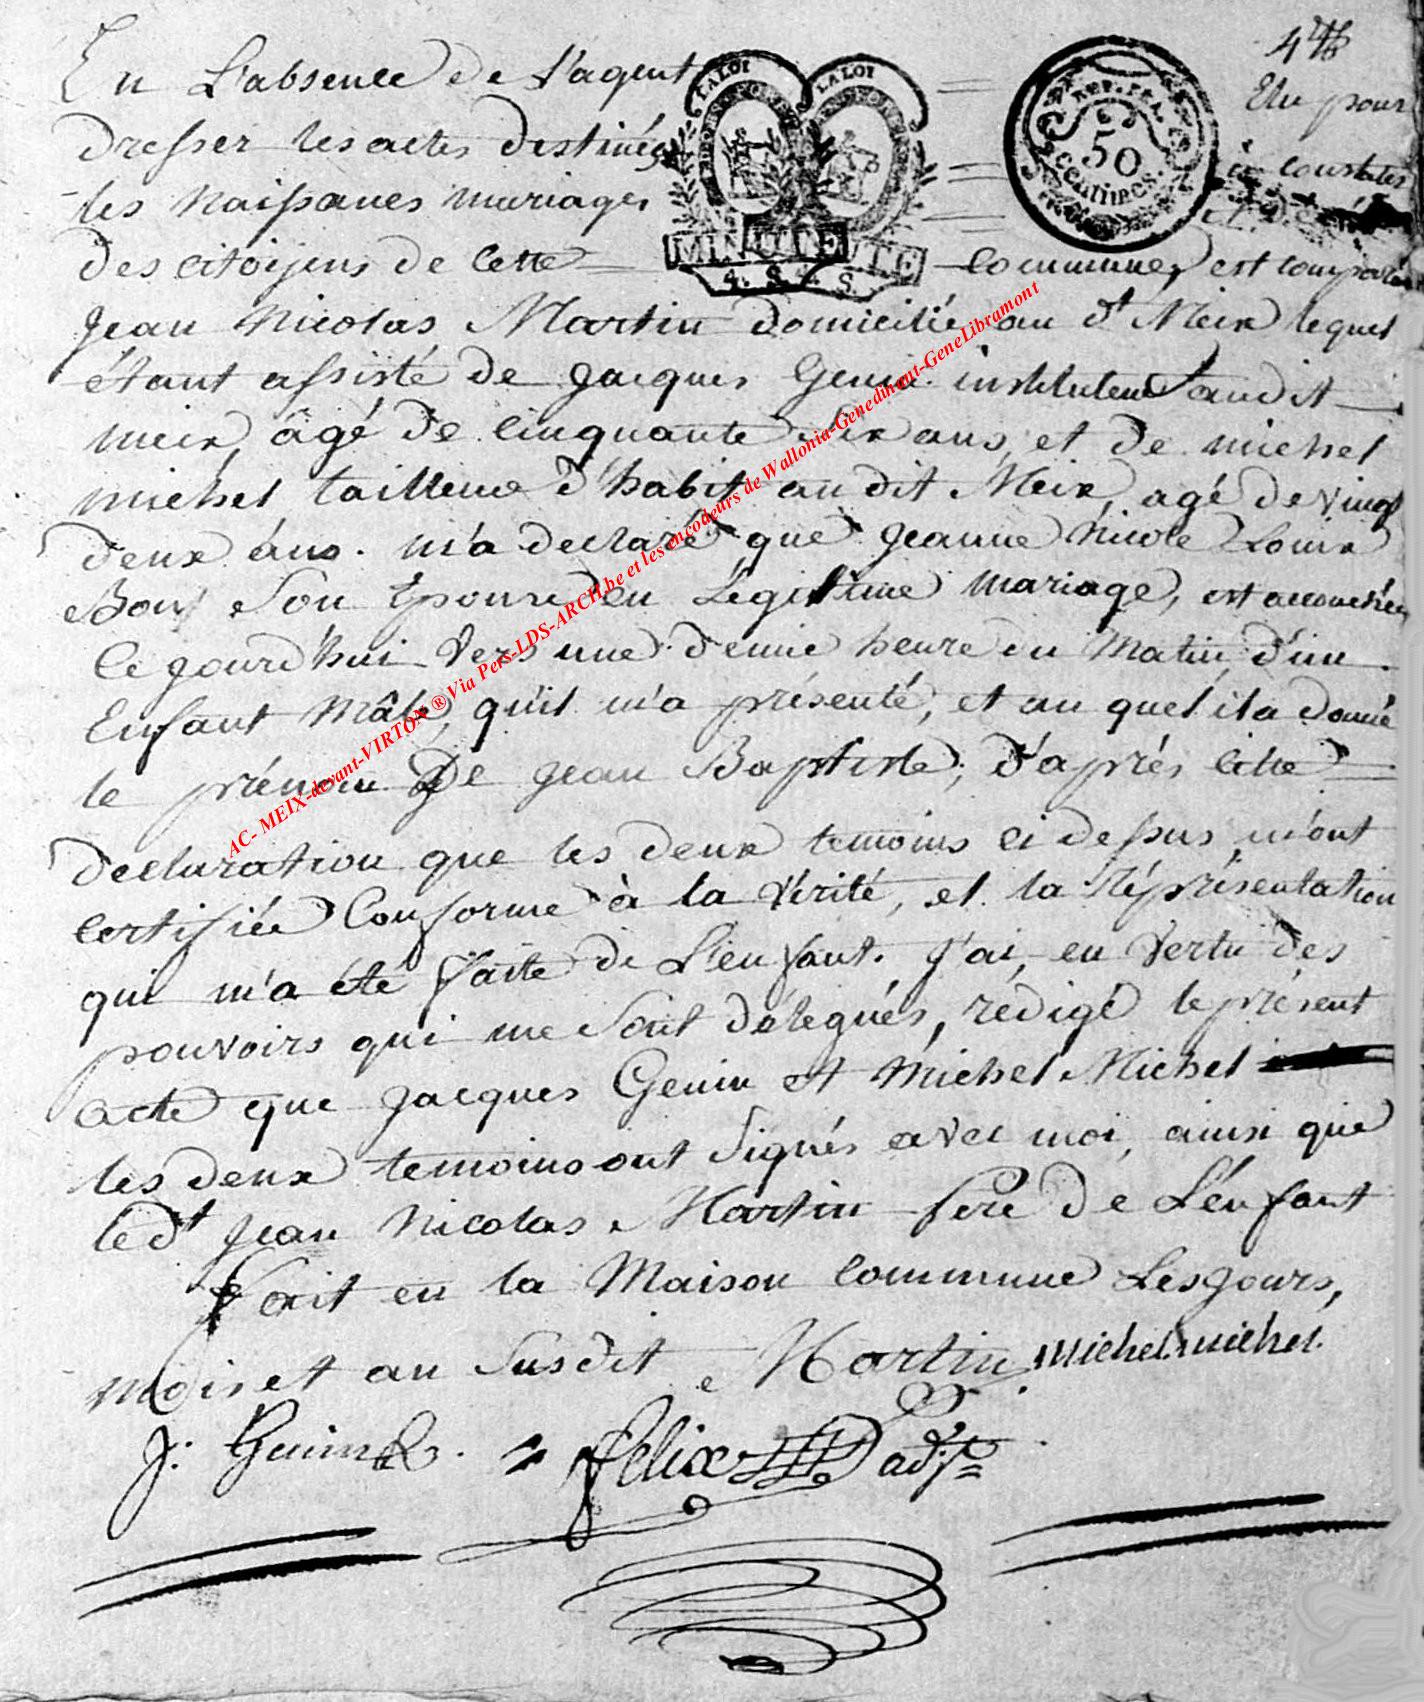 4
En L'absence de l'agent = Elu pour
LA LOI LA LOI
REP. FRA.
50
centimes.
dresser les actes destinés = à constater
les Naissances mariages = et
MINUTE
4. S. 4. S.
des citoijens de Cette = Commune, est comparu
Jean Nicolas Martin domicilié au dt Meix lequel
étant assisté de Jacques Genin instituteur audit
meix, âgé de cinquante six ans, et de michel
michel tailleur d'habit au dit Meix, agé de vingt
deux ans. m'a declaré que Jeanne Nicole Louix
Bon son Epouse en Légitime mariage, est accouchée
Ce jourd'hui Vers une demie heure du Matin, d'un
Enfant Mâle, qu'il m'a présenté, et au quel il a donné
le prénom De Jean Baptiste; d'après cette
declaration que les deux temoins ci dessus m'ont
certifiée Conforme à la Vérité, et la Réprésentation
qui m'a été faite de L'enfant. J'ai, en Vertu des
pouvoirs qui me sont délegués, rédigé le présent
acte que Jacques Genin et Michel Michel
les deux temoins ont signés avec moi, ainsi que
le dt Jean Nicolas Martin Pere de L'enfant
Fait en la Maison Commune Les jours,
mois et an susdit Martin michel michel.
J: Guinn felix adjt
AC- MEIX-devant-VIRTON ® Via Pers-LDS-ARCH.be et les encodeurs de Wallonia-Genedinant-GeneLibramont